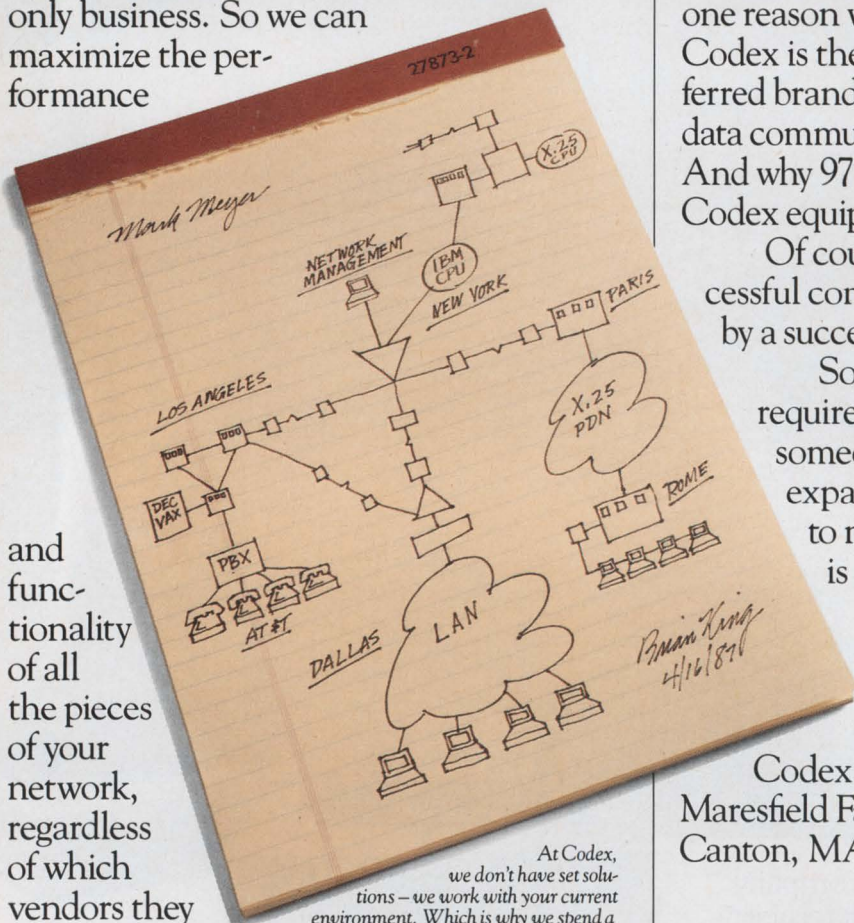 only business. So we can
maximize the per-
formance
and
func-
tionality
of all
the pieces
of your
network,
regardless
of which
vendors they
27873-2
Mark Meyer
X.25
CPU
NETWORK
MANAGEMENT
IBM
CPU
NEW YORK
PARIS
LOS ANGELES
X.25
PDN
DEC
VAX
ROME
PBX
AT&T
DALLAS
LAN
Brian King
4/16/87
At Codex,
we don't have set solu-
tions – we work with your current
environment. Which is why we spend a
one reason
Codex is the
ferred brand
data commu
And why 97
Codex equip
Of cou
cessful con
by a succe
So
require
someo
expa
to
is
Codex
Maresfield F
Canton, MA